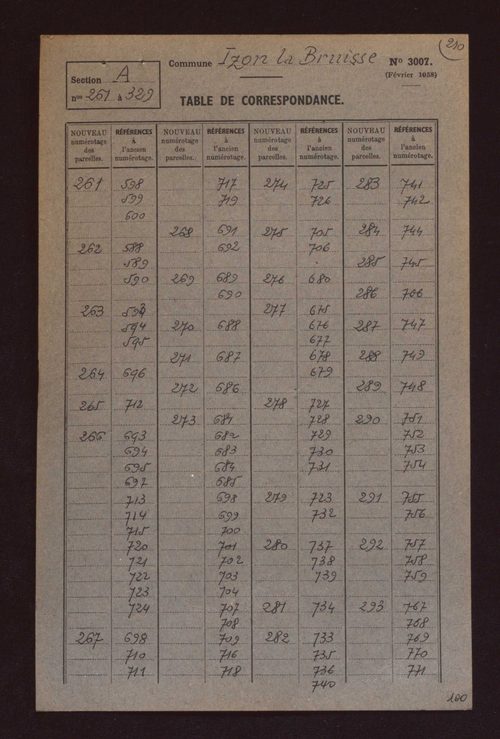 210
Commune Izon la Bruisse N° 3007.
(Février 1958)
Section A
nos 261 à 329
TABLE DE CORRESPONDANCE.
NOUVEAU RÉFÉRENCES NOUVEAU RÉFÉRENCES NOUVEAU RÉFÉRENCES NOUVEAU RÉFÉRENCES
numérotage à numérotage à numérotage à numérotage à
des l'ancien des l'ancien des l'ancien des l'ancien
parcelles. numérotage. parcelles. numérotage. parcelles. numérotage. parcelles. numérotage.
261 598 717 274 725 283 741
599 719 726 742
600
268 691 275 705 284 744
262 588 692 706
589 285 745
590 269 689 276 680
690 286
263 593 277 675
594 270 688 676 287 747
595 677
271 687 678 288 749
264 696 679
272 686 289 748
265 712 278 727
273 681 728 290 751
266 693 682 729 752
694 683 730 753
695 684 731 754
697 685
713 698 279 723 291 755
714 699 732 756
715 700
720 701 280 737 292 757
721 702 738 758
722 703 739 759
723 704
724 707 281 734 293 767
708 768
267 698 709 282 733 769
710 716 735 770
711 718 736 771
740
100